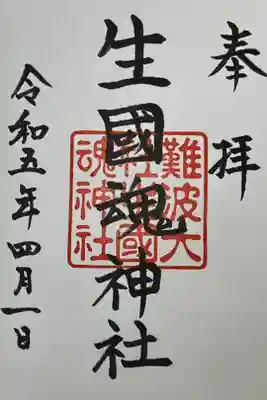 奉拝
生國魂神社
令和五年四月一日
難波大
社生國
魂神社